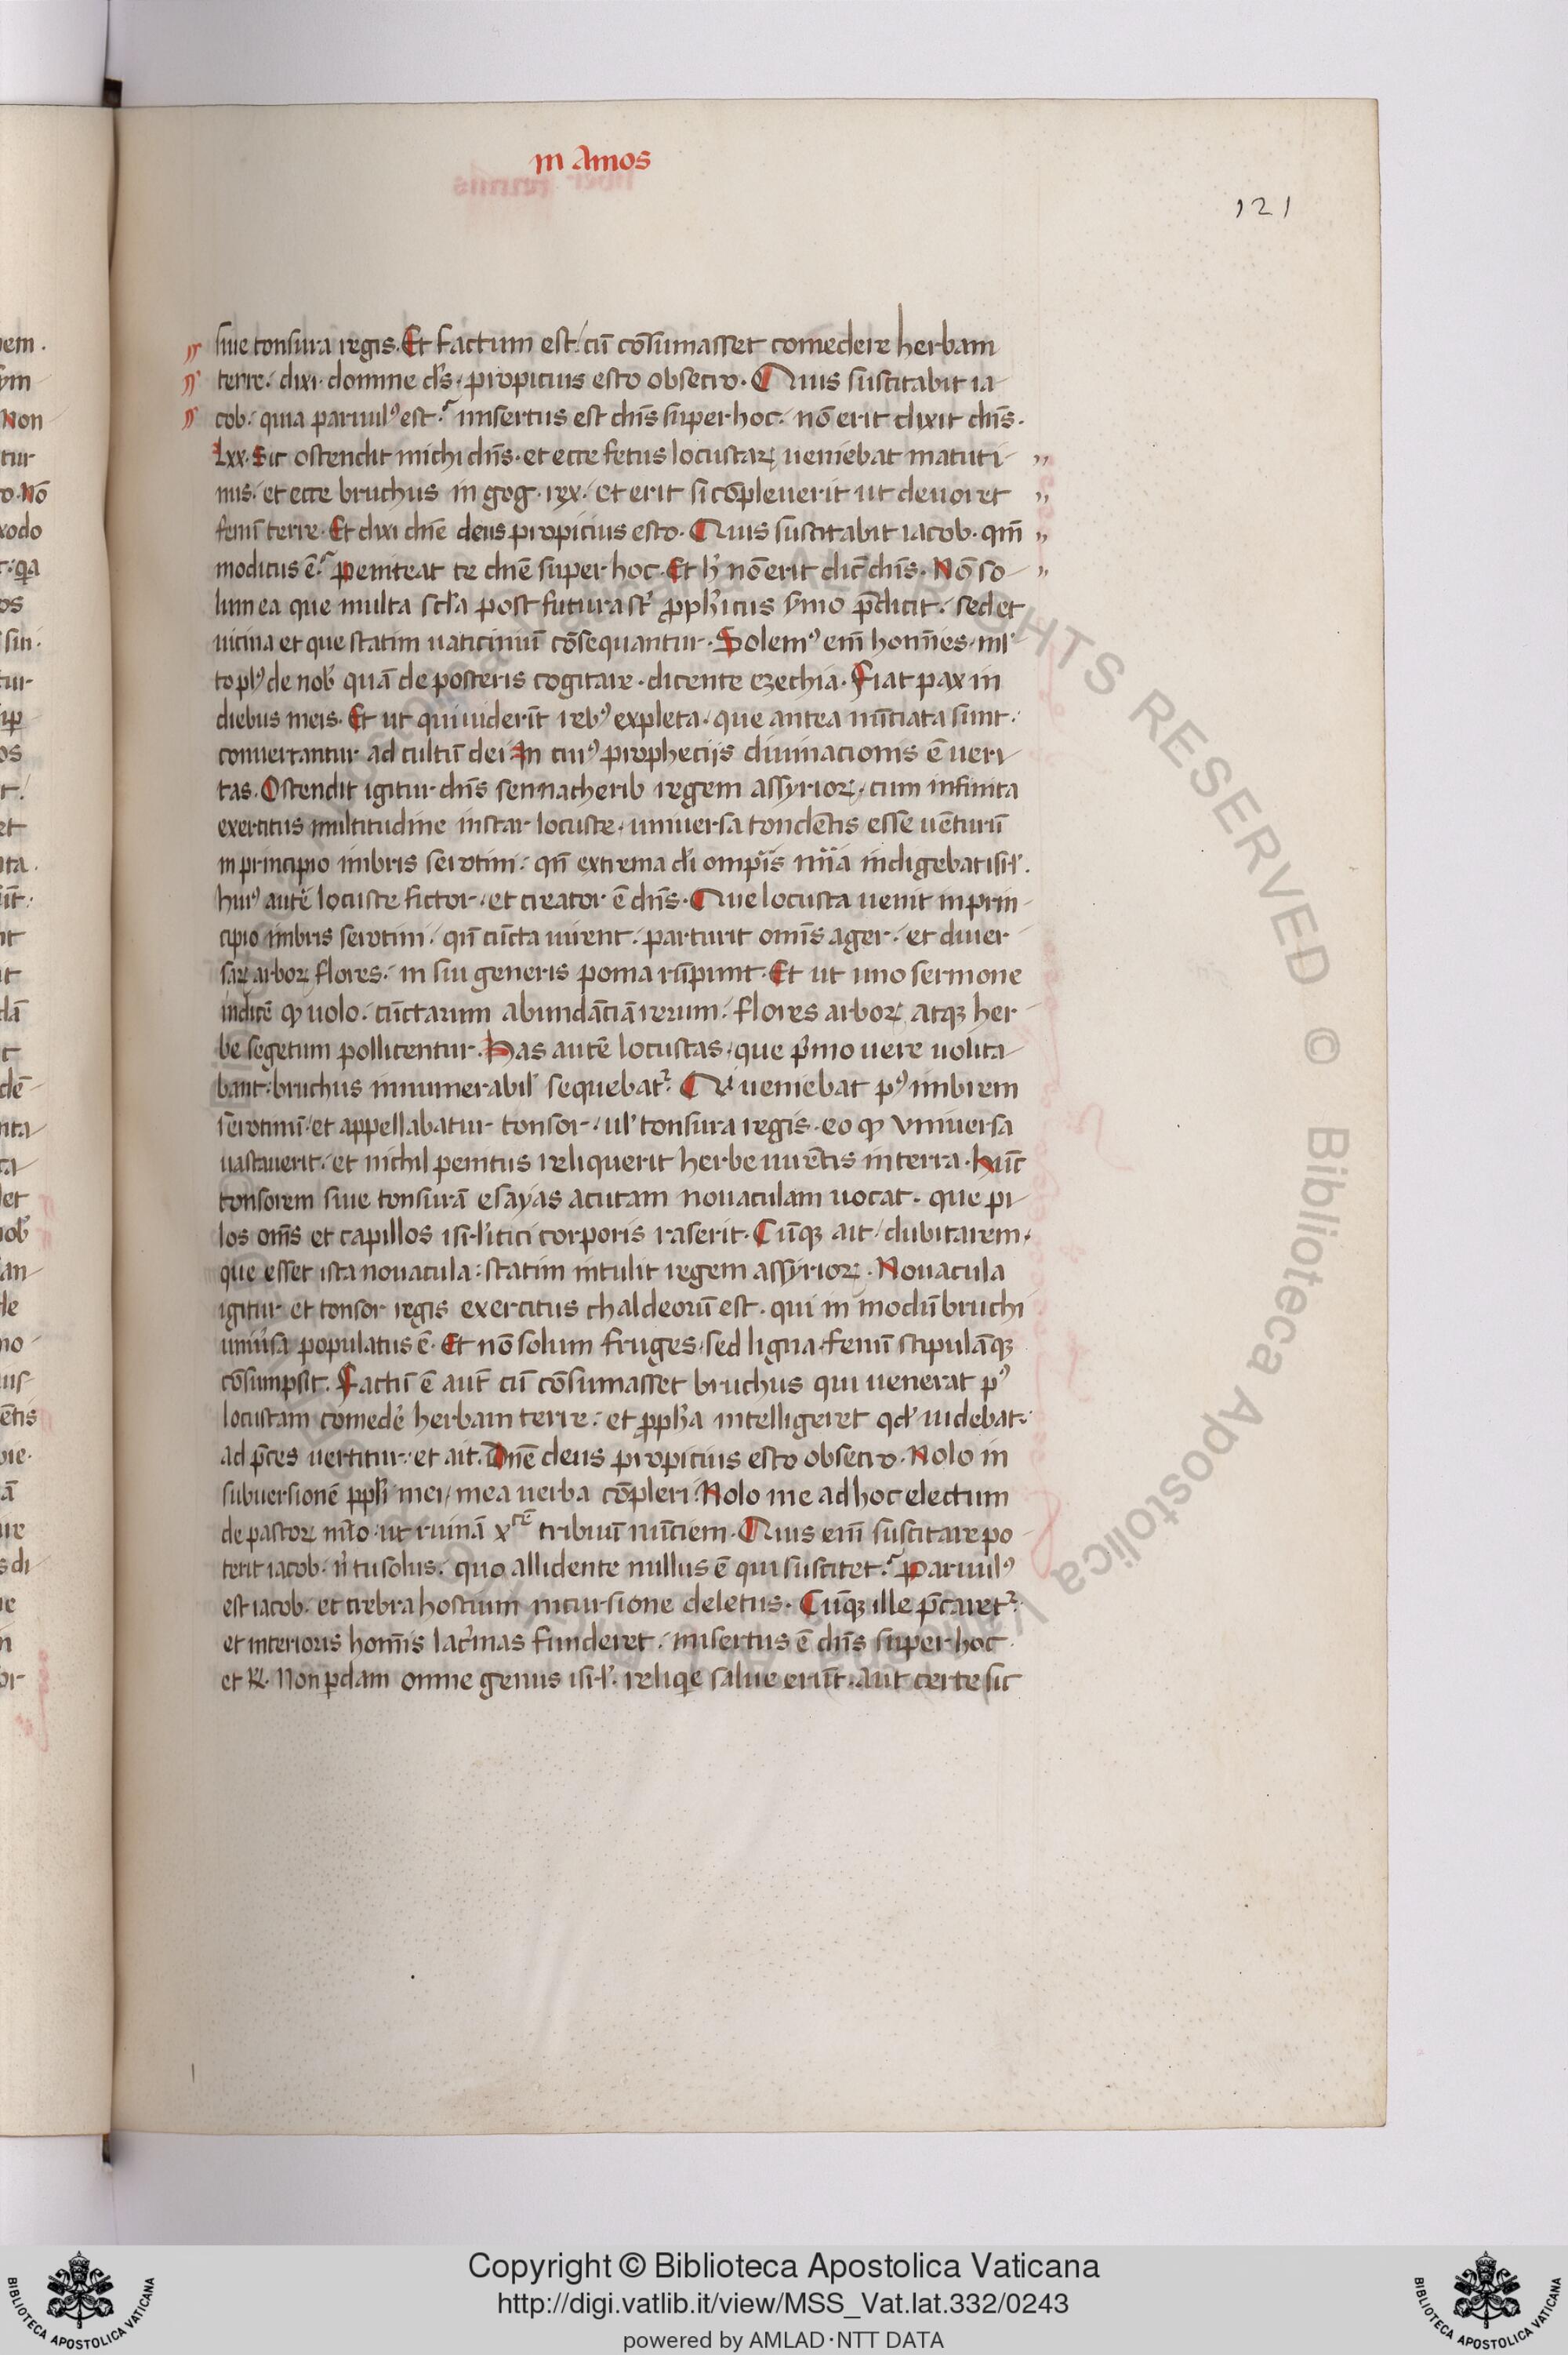 in Amos
121
siue tonsura regis. Et factum est: cū cōsumasset comedere herbam
terre. dixi. domine d̄s. propicius esto obsecro. Quis suscitabit ia
cob. quia paruul⁹ est. misertus est dn̄s super hoc. nō erit dixit dn̄s.
Lxx. Sic ostendit michi dn̄s. et ecce fetus locustaꝝ ueniebat matuti
nus. et ecce bruchus in gog. rex. et erit si cōpleuerit ut deuoret
fenū terre. Et dixi dn̄e deus propicius esto. Quis suscitabit iacob. qm̄
modicus ē. peniteat te dn̄e super hoc. Et h̄ nō erit dic̄ dn̄s. Nō so
lum ea que multa sc̄la post futura st̄ ꝓph̄icus s̄mo p̄dicit. sed et
uicina et que statim uaticiniū cōsequantur. Solem⁹ em̄ hom̄es. ml̄
to pl⁹ de nob̄ quā de posteris cogitare. dicente ezechia. Fiat pax in
diebus meis. Et ut qui uiderīt reb⁹ expleta. que antea nūciata sunt.
conuertantur ad cultū dei In cui⁹ propheciis diuinacionis ē ueri
tas. Ostendit igitur dn̄s sennacherib regem assyrioꝝ. cum infinita
exercitus multitudine instar locuste. uniuersa tondētis esse uēturū
in principio imbris serotini. qn̄ extrema d̄i omp̄is mīa indigebat isr̄l.
hui⁹ autē locuste fictor. et creator ē dn̄s. Que locusta uenit in prin
cipio imbris serotini. qn̄ cūcta uirent. parturit omīs ager. et diuer
saꝝ arboꝝ flores. in sui generis poma rūpunt. Et ut uno sermone
indicē ꝙ uolo. cūctarum abundāciā rerum. flores arboꝝ atqꝫ her
be segetum pollicentur. Has autē locustas. que p̄mo uere uolita
bant. bruchus innumerabil̄ sequebat᷑. Qui ueniebat p⁹ imbrem
serotinū. et appellabatur tonsor. ul̄ tonsura regis. eo ꝙ vniuersa
uastauerit. et nichil penitus reliquerit herbe uirētis in terra. hūc
tonsorem siue tonsurā esayas acutam nouaculam uocat. que pi
los om̄s et capillos isr̄litici corporis raserit. Cūqꝫ ait dubitarem.
que esset ista nouacula: statim intulit regem assyrioꝝ. Nouacula
igitur et tonsor regis exercitus chaldeorū est. qui in modū bruchi
uniu̓sa populatus ē. Et nō solum fruges. sed ligna. fenū stipulāqꝫ
cōsumpsit. Factū ē aut̄ cū cōsumasset bruchus qui uenerat p⁹
locustam comedē herbam terre. et ꝓph̄a intelligeret qd̄ uidebat.
ad p̄ces uertitur. et ait. Dn̄e deus propicius esto obsecro. Nolo in
subuersionē pp̄li mei. mea uerba cōpleri. Nolo me ad hoc electum
de pastoꝝ m̄lo. ut ruinā xcē tribuū nūciem. Quis em̄ suscitare po
terit iacob. n̄ tu solus. quo allidente nullus ē qui suscitet. paruul⁹
est iacob. et crebra hostium incursione deletus. Cūqꝫ ille p̄caret᷑.
et interioris homīs lac̄mas funderet. misertus ē dn̄s super hoc.
et R̄. Non ꝑdam omne genus isr̄l. reliq̄e salue erūt. aut certe sic
Copyright © Biblioteca Apostolica Vaticana
http://digi.vatlib.it/view/MSS_Vat.lat.332/0243
powered by AMLAD·NTT DATA